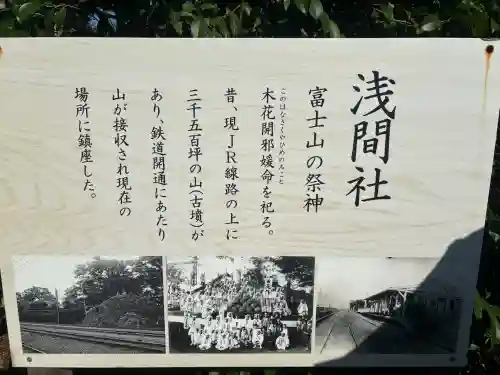 浅間社
富士山の祭神
このはなさくやひめのみこと
木花開邪媛命を祀る。
昔、現JR線路の上に
三千五百坪の山(古墳)が
あり、鉄道開通にあたり
山が接収され現在の
場所に鎮座した。